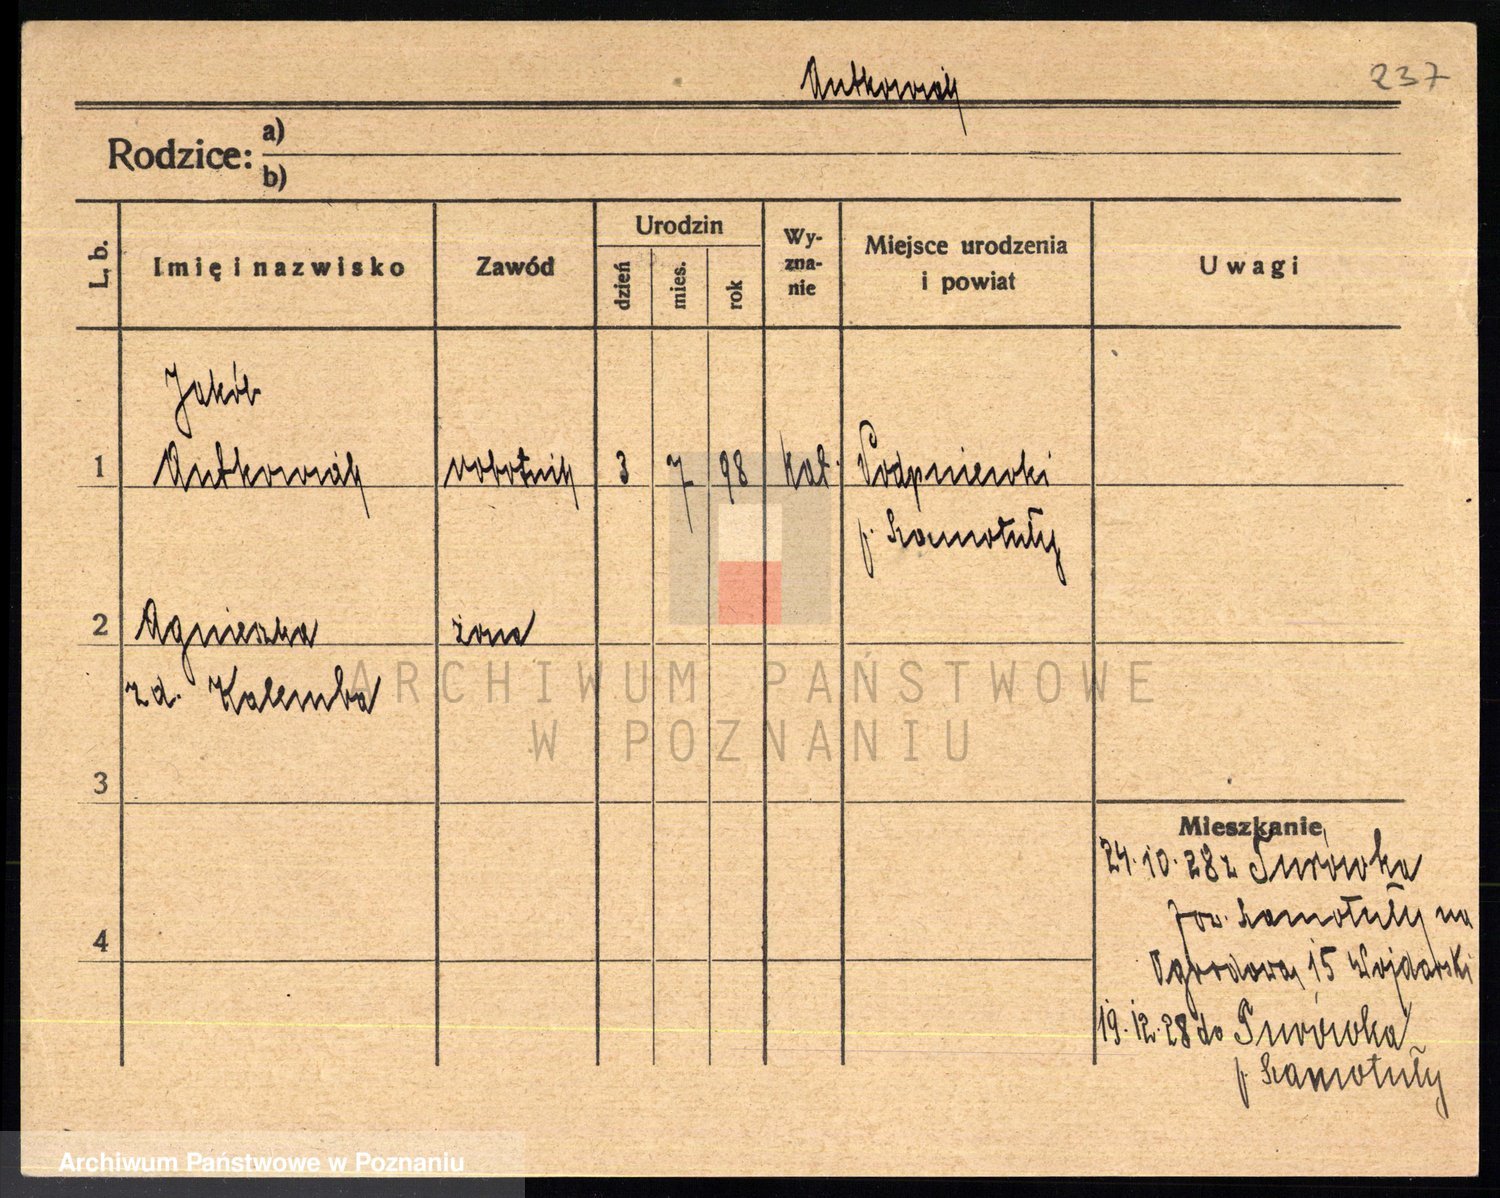 Antkowiak
237
Rodzice: a)
b)
L. b.
Imię i nazwisko
Zawód
Urodzin
dzień
mies.
rok
Wy-
zna-
nie
Miejsce urodzenia
i powiat
Uwagi
Jakób
1 Antkowiak robotnik 3 7 98 kat. Podpniewki
p. Szamotuły
2 Agnieszka żona
z d. Kalemba
ARCHIWUM PAŃSTWOWE
W POZNANIU
3
Mieszkanie
24.10.28 z Turówka
pow. Szamotuły na
4
Ogrodowa 15 Wojdarski
19.12.28 do Turówka
p. Szamotuły
Archiwum Państwowe w Poznaniu